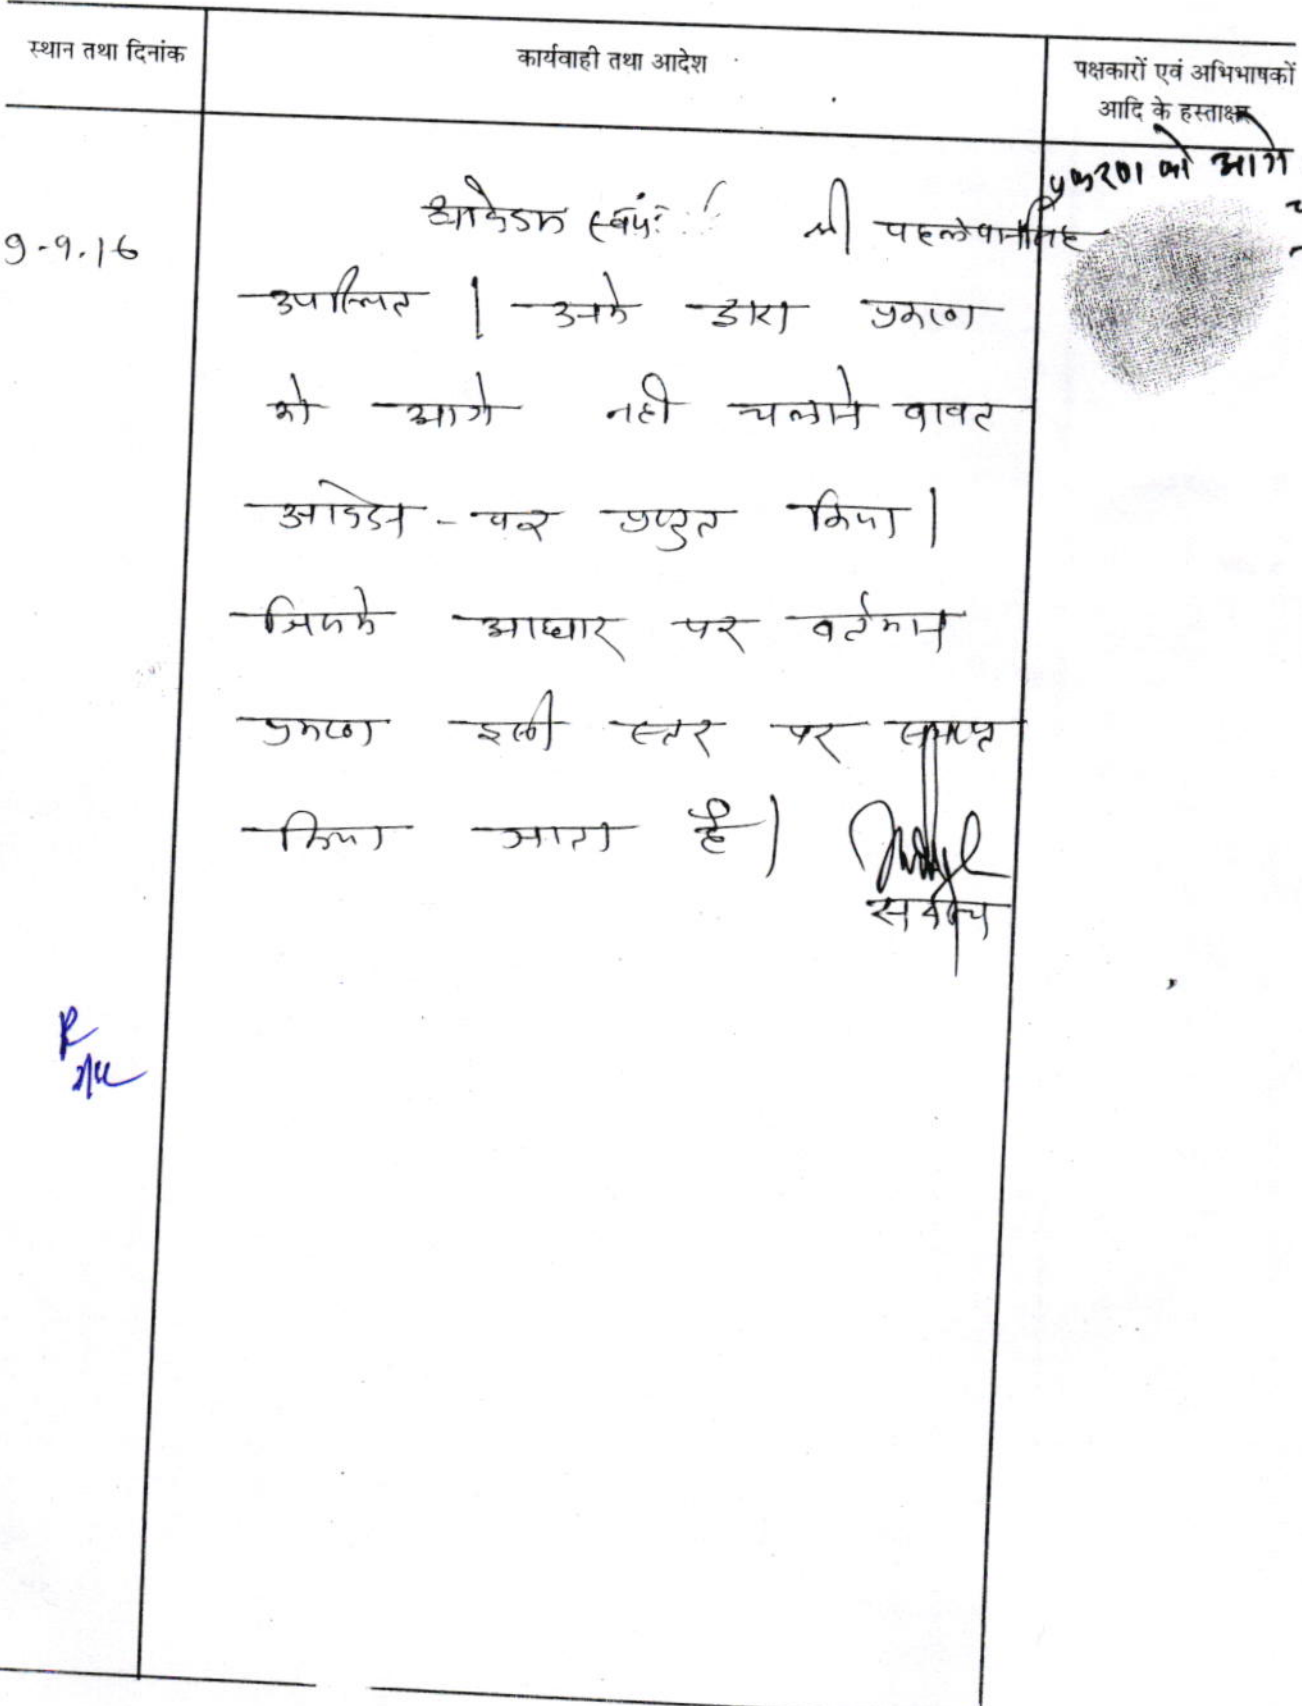 स्थान तथा दिनांक
कार्यवाही तथा आदेश
पक्षकारों एवं अभिभाषकों
आदि के हस्ताक्षर
प्रकरण को आगे
9-9-16
आवेदक स्वयं श्री पहलवानसिंह
उपस्थित | उनके द्वारा प्रकरण
को आगे नही चलाने बावत
आवेदन - पत्र प्रस्तुत किया |
जिसके आधार पर वर्तमान
प्रकरण इसी स्तर पर समाप्त
किया जाता है |